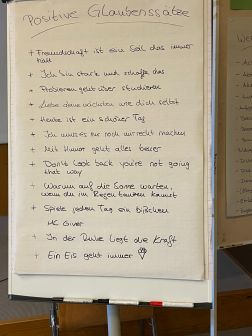 Positive Glaubenssätze
+ Freundschaft ist ein Seil das immer
hält
+ Ich bin stark und schaffe das
+ Probieren geht über studieren
+ Liebe deine nächsten wie dich selbst
+ Heute ist ein schöner Tag
+ Ich muss es nur noch mir recht machen
+ Mit Humor geht alles besser
+ Don't look back you're not going
that way
+ Warum auf die Sonne warten,
wenn du im Regen tanzen kannst
+ Spiele jeden Tag ein bißchen
Mc Giver
+ In der Ruhe liegt die Kraft
+ Ein Eis geht immer